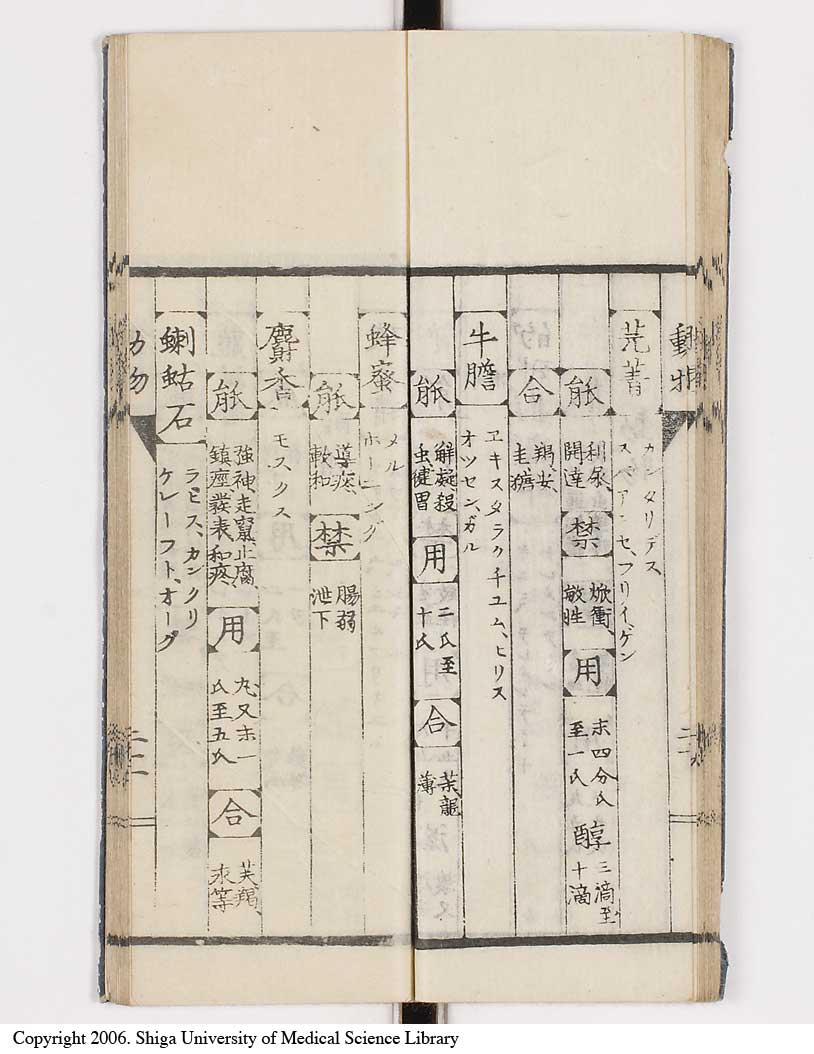 動物
芫菁
カンタリデス
スパアンセ、フリイ、ゲン
能
利尿、
開達
禁
焮衝、
敏性
用
末四分氏
至一氏
醇
三滴至
十滴
合
羯、安、
牛膽
エキスタラクチユム、ヒリス
オツセン、ガル
能
解凝殺
虫健胃
用
二氏至
十氏
合
茱、龍、
薄
蜂蜜
メル
ホーニング
能
導痰、
軟和
禁
腸弱
泄下
麝香
モスクス
能
強神、走竄、止腐、
鎮痙發表和痰、
用
丸又末一
氏至五氏
合
芙、羯、
求等
蝲蛄石
ラピス、カンクリ
ケレーフト、オーグ
Copyright 2006. Shiga University of Medical Science Library